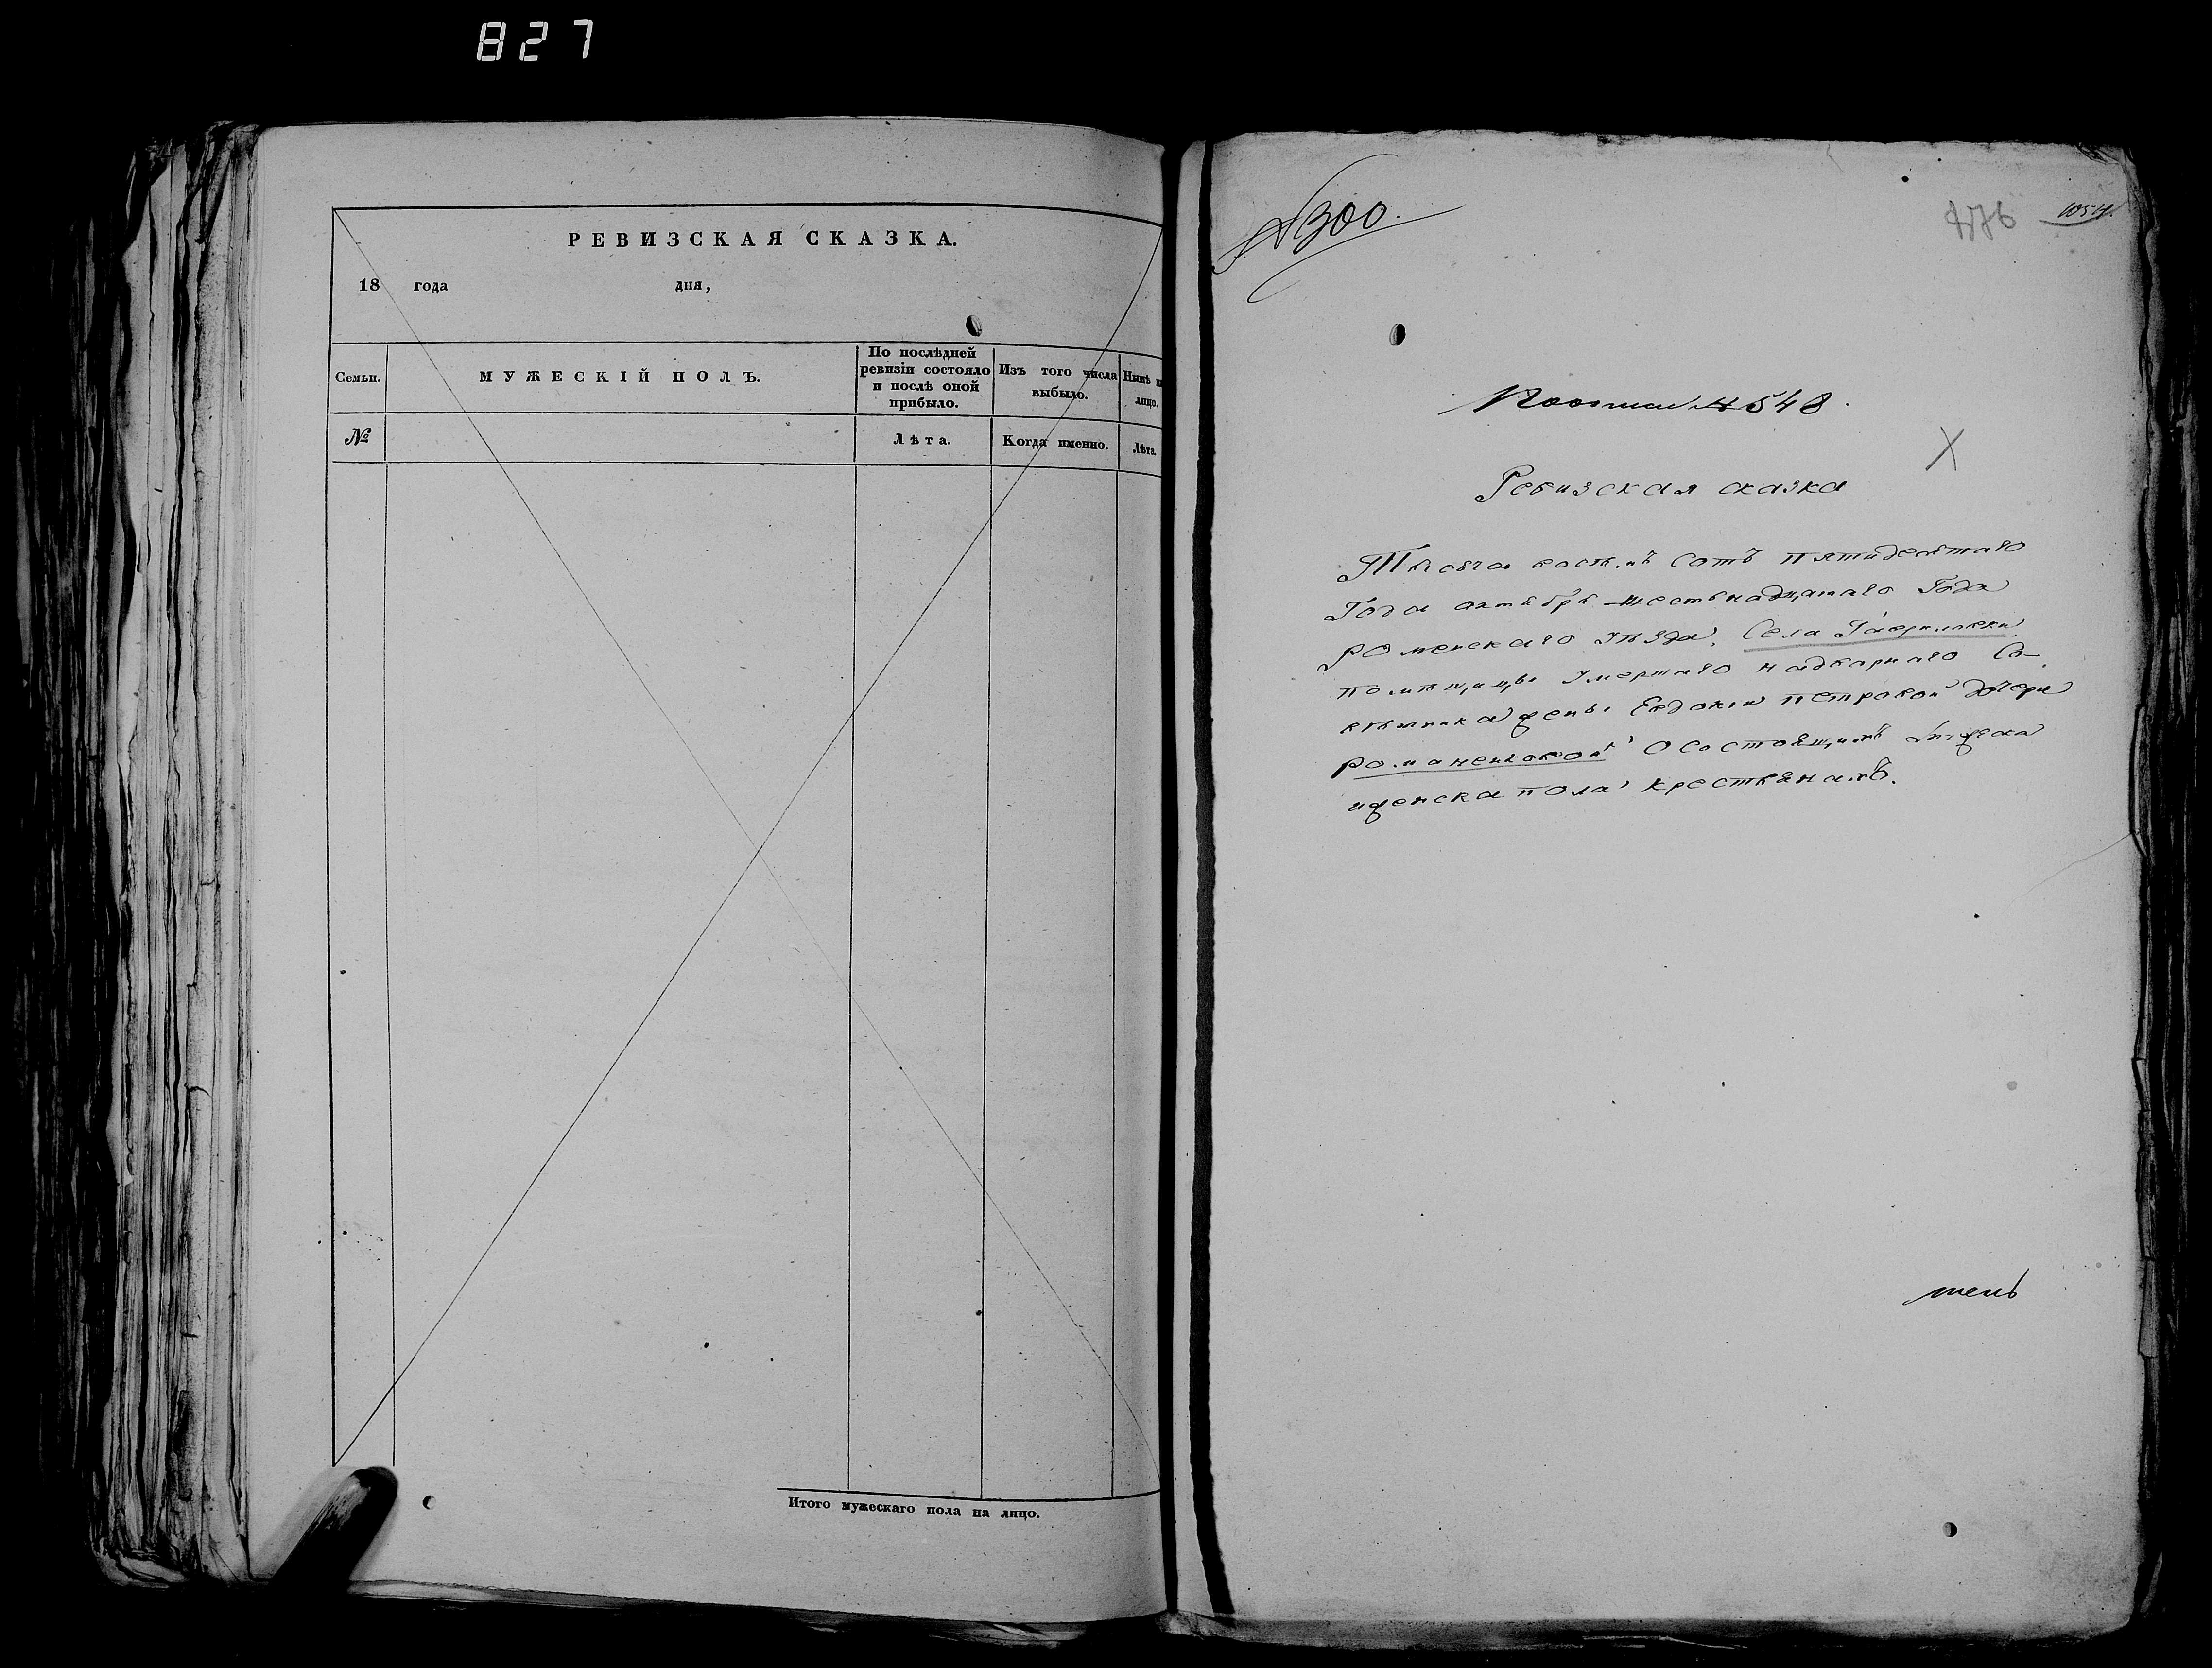 827
РЕВИЗСКАЯ СКАЗКА.
18 года дня,
Семьи.
МУЖЕСКІЙ ПОЛЪ.
По послѣдней
ревизіи состояло
и послѣ оной
прибыло.
Изъ того числа
выбыло.
Нынѣ
лицо.
№
Лѣта.
Когда именно.
Лѣта.
Итого мужескаго пола на лицо.
№300.
1054.
№ 548.
Ревизская сказка
Тысяча восемъ сотъ пятидесятаго
Года октября шестьнадцатаго Года
Роменскаго уѣзда, Села Гавриловки
помѣщицы умершаго надворнаго Со-
вѣтника жены Евдокіи петровой дочери
Романенковой о состоящихъ мужеска
иженска пола крестьянахъ.